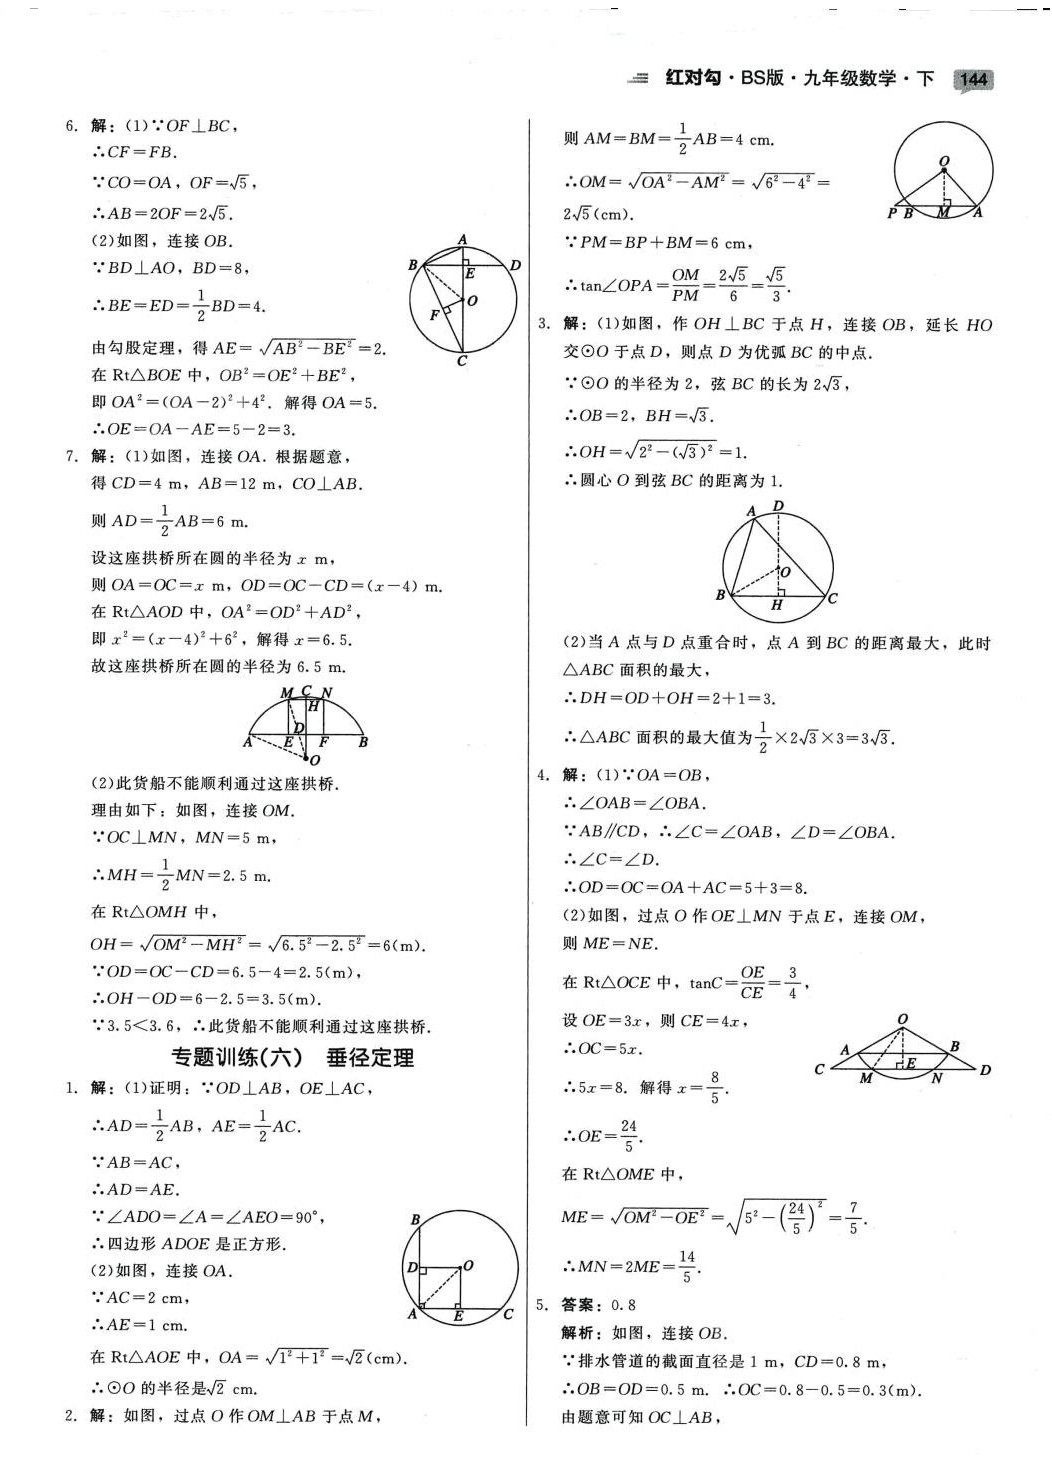 红对勾·BS版·九年级数学·下 144
6. 解：(1)∵OF⊥BC，
∴CF=FB.
∵CO=OA，OF=√5，
∴AB=2OF=2√5.
(2)如图，连接 OB.
∵BD⊥AO，BD=8，
∴BE=ED=1/2BD=4.
由勾股定理，得 AE=√(AB²-BE²)=2.
在 Rt△BOE 中，OB²=OE²+BE²，
即 OA²=(OA-2)²+4². 解得 OA=5.
∴OE=OA-AE=5-2=3.
A
B
E
D
O
F
C
7. 解：(1)如图，连接 OA. 根据题意，
得 CD=4 m，AB=12 m，CO⊥AB.
则 AD=1/2AB=6 m.
设这座拱桥所在圆的半径为 x m，
则 OA=OC=x m，OD=OC-CD=(x-4) m.
在 Rt△AOD 中，OA²=OD²+AD²，
即 x²=(x-4)²+6²，解得 x=6.5.
故这座拱桥所在圆的半径为 6.5 m.
M C N
H
D
A E F B
O
(2)此货船不能顺利通过这座拱桥.
理由如下：如图，连接 OM.
∵OC⊥MN，MN=5 m，
∴MH=1/2MN=2.5 m.
在 Rt△OMH 中，
OH=√(OM²-MH²)=√(6.5²-2.5²)=6(m).
∵OD=OC-CD=6.5-4=2.5(m)，
∴OH-OD=6-2.5=3.5(m).
∵3.5<3.6，∴此货船不能顺利通过这座拱桥.
专题训练(六) 垂径定理
1. 解：(1)证明：∵OD⊥AB，OE⊥AC，
∴AD=1/2AB，AE=1/2AC.
∵AB=AC，
∴AD=AE.
∵∠ADO=∠A=∠AEO=90°，
∴四边形 ADOE 是正方形.
(2)如图，连接 OA.
∵AC=2 cm，
∴AE=1 cm.
在 Rt△AOE 中，OA=√(1²+1²)=√2(cm).
∴⊙O 的半径是√2 cm.
B
D
O
A
E
C
2. 解：如图，过点 O 作 OM⊥AB 于点 M，
则 AM=BM=1/2AB=4 cm.
∴OM=√(OA²-AM²)=√(6²-4²)=
2√5(cm).
∵PM=BP+BM=6 cm，
∴tan∠OPA=OM/PM=2√5/6=√5/3.
O
P B M A
3. 解：(1)如图，作 OH⊥BC 于点 H，连接 OB，延长 HO
交⊙O 于点 D，则点 D 为优弧 BC 的中点.
∵⊙O 的半径为 2，弦 BC 的长为 2√3，
∴OB=2，BH=√3.
∴OH=√(2²-(√3)²)=1.
∴圆心 O 到弦 BC 的距离为 1.
A D
O
B H C
(2)当 A 点与 D 点重合时，点 A 到 BC 的距离最大，此时
△ABC 面积的最大，
∴DH=OD+OH=2+1=3.
∴△ABC 面积的最大值为1/2×2√3×3=3√3.
4. 解：(1)∵OA=OB，
∴∠OAB=∠OBA.
∵AB∥CD，∴∠C=∠OAB，∠D=∠OBA.
∴∠C=∠D.
∴OD=OC=OA+AC=5+3=8.
(2)如图，过点 O 作 OE⊥MN 于点 E，连接 OM，
则 ME=NE.
在 Rt△OCE 中，tanC=OE/CE=3/4，
设 OE=3x，则 CE=4x，
∴OC=5x.
∴5x=8. 解得 x=8/5.
∴OE=24/5.
在 Rt△OME 中，
ME=√(OM²-OE²)=√(5²-(24/5)²)=7/5.
∴MN=2ME=14/5.
O
A B
C E D
M N
5. 答案：0.8
解析：如图，连接 OB.
∵排水管道的截面直径是 1 m，CD=0.8 m，
∴OB=OD=0.5 m. ∴OC=0.8-0.5=0.3(m).
由题意可知 OC⊥AB，